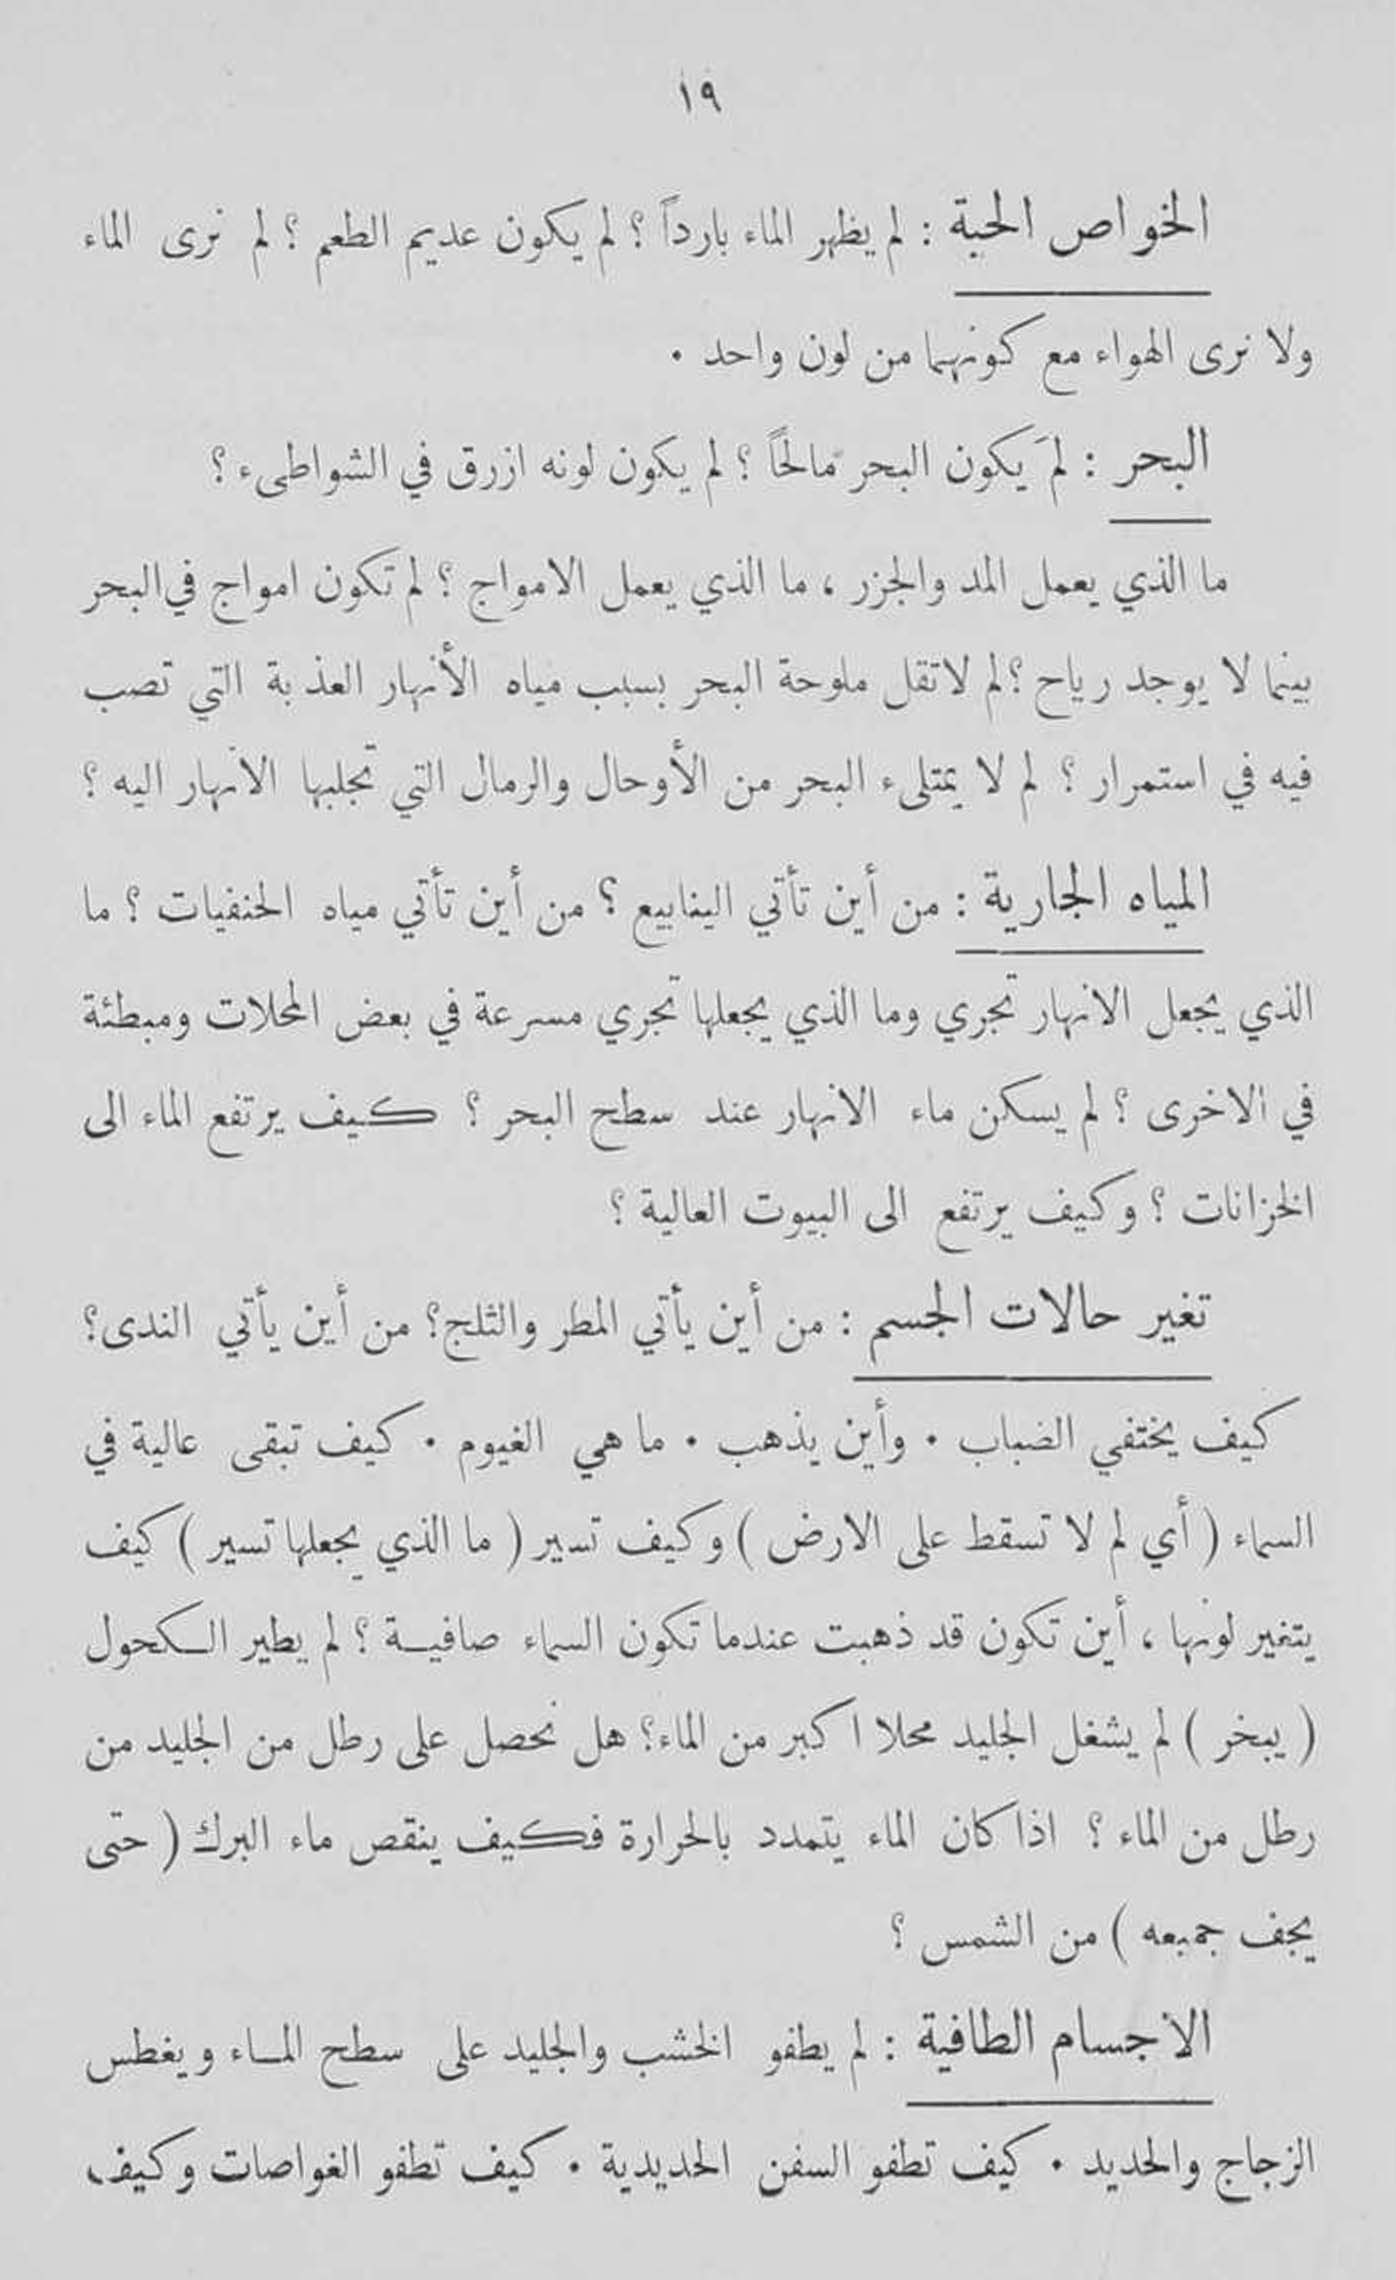 ١٩
الخواص الحية : لم يظهر الماء بارداً ؟ لم يكون عديم الطعم ؟ لم نرى الماء
ولا نرى الهواء مع كونهما من لون واحد .
البحر : لمَ يكون البحر مالحًا ؟ لم يكون لونه ازرق في الشواطىء ؟
ما الذي يعمل المد والجزر ، ما الذي يعمل الامواج ؟ لم تكون امواج في البحر
بينما لا يوجد رياح ؟ لم لا تقل ملوحة البحر بسبب مياه الأنهار العذبة التي تصب
فيه في استمرار ؟ لم لا يمتلىء البحر من الأوحال والرمال التي تجلبها الانهار اليه ؟
المياه الجارية : من أين تأتي الينابيع ؟ من أين تأتي مياه الحنفيات ؟ ما
الذي يجعل الانهار تجري وما الذي يجعلها تجري مسرعة في بعض المحلات ومبطئة
في الاخرى ؟ لم يسكن ماء الانهار عند سطح البحر ؟ كيف يرتفع الماء الى
الخزانات ؟ وكيف يرتفع الى البيوت العالية ؟
تغير حالات الجسم : من أين يأتي المطر والثلج؟ من أين يأتي الندى؟
كيف يختفي الضباب . وأين يذهب . ما هي الغيوم . كيف تبقى عالية في
السماء ( أي لم لا تسقط على الارض ) وكيف تسير ( ما الذي يجعلها تسير ) كيف
يتغير لونها ، أين تكون قد ذهبت عندما تكون السماء صافيـة ؟ لم يطير الكحول
( يبخر ) لم يشغل الجليد محلا اكبر من الماء؟ هل نحصل على رطل من الجليد من
رطل من الماء ؟ اذا كان الماء يتمدد بالحرارة فكيف ينقص ماء البرك ( حتى
يجف جميعه ) من الشمس ؟
الاجسام الطافية : لم يطفو الخشب والجليد على سطح المـاء ويغطس
الزجاج والحديد . كيف تطفو السفن الحديدية . كيف تطفو الغواصات وكيف